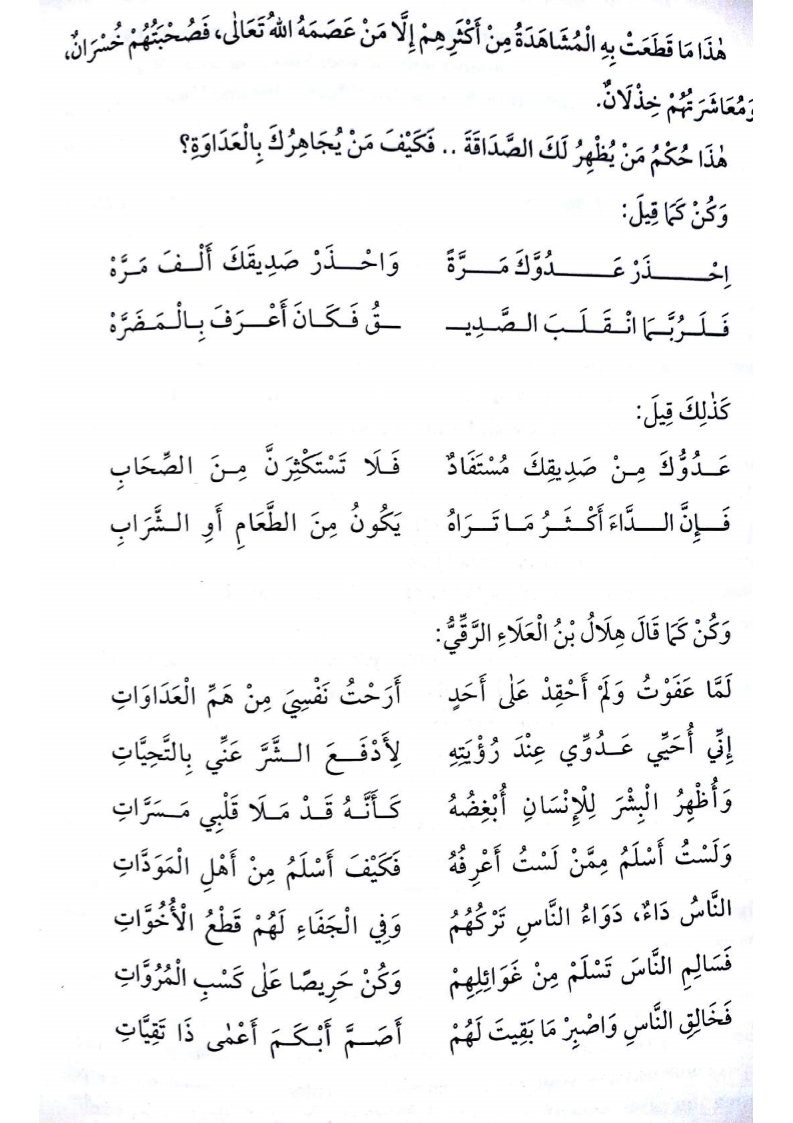 هٰذَا مَا قَطَعَتْ بِهِ الْمُشَاهَدَةُ مِنْ أَكْثَرِهِمْ إِلَّا مَنْ عَصَمَهُ اللهُ تَعَالٰى، فَصُحْبَتُهُمْ خُسْرَانٌ،
وَمُعَاشَرَتُهُمْ خِذْلَانٌ.
هٰذَا حُكْمُ مَنْ يُظْهِرُ لَكَ الصَّدَاقَةَ .. فَكَيْفَ مَنْ يُجَاهِرُكَ بِالْعَدَاوَةِ؟
وَكُنْ كَمَا قِيلَ:
اِحْـــذَرْ عَـــدُوَّكَ مَـــرَّةً وَاحْـــذَرْ صَدِيقَكَ أَلْـفَ مَـرَّهْ
فَـلَـرُبَّـمَا انْـقَـلَـبَ الـصَّـدِيـ ـقُ فَـكَـانَ أَعْـرَفَ بِـالْـمَـضَرَّهْ
كَذٰلِكَ قِيلَ:
عَـدُوُّكَ مِـنْ صَدِيقِكَ مُسْتَفَادٌ فَـلَا تَسْتَكْثِرَنَّ مِـنَ الصِّحَابِ
فَـإِنَّ الـدَّاءَ أَكْـثَـرُ مَـا تَـرَاهُ يَكُونُ مِنَ الطَّعَامِ أَوِ الـشَّرَابِ
وَكُنْ كَمَا قَالَ هِلَالُ بْنُ الْعَلَاءِ الرَّقِّيُّ:
لَمَّا عَفَوْتُ وَلَمْ أَحْقِدْ عَلٰى أَحَدٍ أَرَحْتُ نَفْسِيَ مِنْ هَمِّ الْعَدَاوَاتِ
إِنِّي أُحَيِّي عَـدُوِّي عِنْدَ رُؤْيَتِهِ لِأَدْفَـعَ الـشَّرَّ عَنِّي بِالتَّحِيَّاتِ
وَأُظْهِرُ الْبِشْرَ لِلْإِنْسَانِ أُبْغِضُهُ كَـأَنَّـهُ قَـدْ مَـلَا قَلْبِي مَـسَرَّاتِ
وَلَسْتُ أَسْلَمُ مِمَّنْ لَسْتُ أَعْرِفُهُ فَكَيْفَ أَسْلَمُ مِنْ أَهْلِ الْمَوَدَّاتِ
النَّاسُ دَاءٌ، دَوَاءُ النَّاسِ تَرْكُهُمُ وَفِي الْجَفَاءِ لَهُمْ قَطْعُ الْأُخُوَّاتِ
فَسَالِمِ النَّاسَ تَسْلَمْ مِنْ غَوَائِلِهِمْ وَكُنْ حَرِيصًا عَلٰى كَسْبِ الْمُرُوَّاتِ
فَخَالِقِ النَّاسِ وَاصْبِرْ مَا بَقِيتَ لَهُمْ أَصَـمَّ أَبْكَـمَ أَعْمٰى ذَا تَقِيَّاتِ